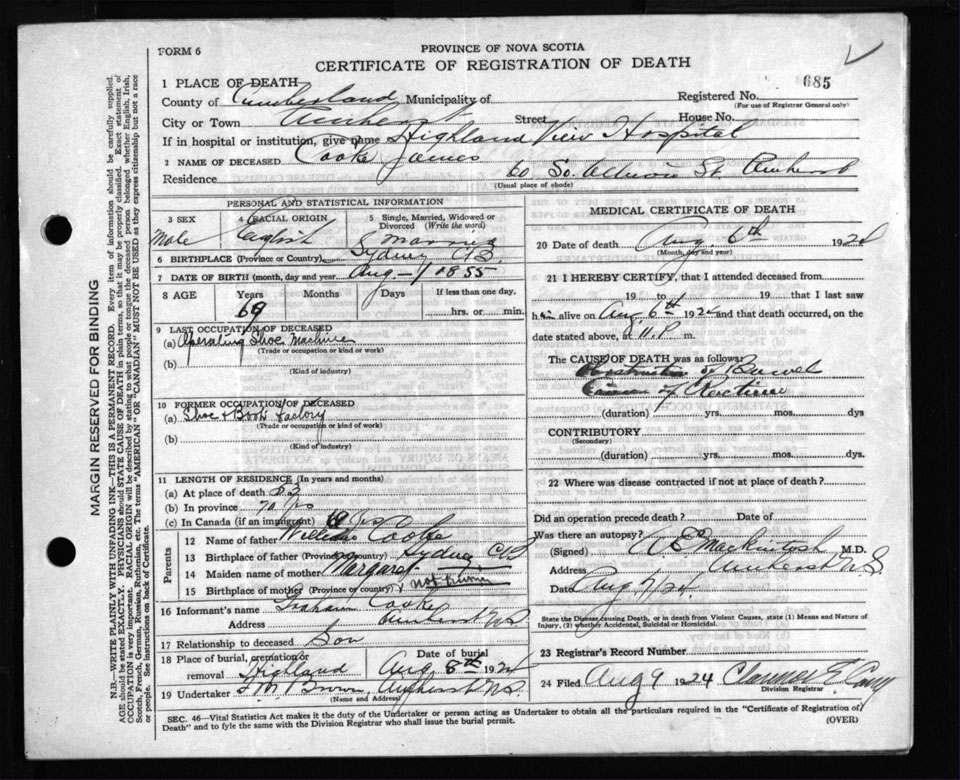 FORM 6
PROVINCE OF NOVA SCOTIA
CERTIFICATE OF REGISTRATION OF DEATH
1 PLACE OF DEATH
685
County of Cumberland Municipality of
Registered No.
(For use of Registrar General only)
City or Town Amherst Street House No.
If in hospital or institution, give name Highland View Hospital
2 NAME OF DECEASED Cooke James
Residence 60 So. Albion St. Amherst
(Usual place of abode)
PERSONAL AND STATISTICAL INFORMATION
3 SEX Male
4 RACIAL ORIGIN English
5 Single, Married, Widowed or Divorced (Write the word) Married
6 BIRTHPLACE (Province or Country) Sydney CB
7 DATE OF BIRTH (month, day and year) Aug - 1855
8 AGE Years Months Days If less than one day,
69 hrs. or min.
9 LAST OCCUPATION OF DECEASED
(a) Operating Shoe Machine
(Trade or occupation or kind of work)
(b)
(Kind of industry)
10 FORMER OCCUPATION OF DECEASED
(a) Shoe & Boot Factory
(Trade or occupation or kind of work)
(b)
(Kind of industry)
11 LENGTH OF RESIDENCE (In years and months)
(a) At place of death
(b) In province
(c) In Canada (if an immigrant) 69 yrs
Parents
12 Name of father William Cooke
13 Birthplace of father (Province or Country) Sydney CB
14 Maiden name of mother Margaret
15 Birthplace of mother (Province or country) not known
16 Informant's name Graham Cooke
Address Amherst NS
17 Relationship to deceased Son
18 Place of burial, cremation or removal Highland
Date of burial Aug 8th 1924
19 Undertaker Brown, Amherst NS
(Name and Address)
MEDICAL CERTIFICATE OF DEATH
20 Date of death Aug 6th 1924
(Month, day and year)
21 I HEREBY CERTIFY, that I attended deceased from
19 to 19 that I last saw
him alive on Aug 6th 1924 and that death occurred, on the
date stated above, at 11 P m.
The CAUSE OF DEATH was as follows:
Obstruction of Bowel
(duration) yrs. mos. dys
CONTRIBUTORY
(Secondary)
(duration) yrs. mos. dys.
22 Where was disease contracted if not at place of death?
Did an operation precede death? Date of
Was there an autopsy?
(Signed) A E MacKintosh M.D.
Address Amherst N.S.
Date Aug 7/24
State the Disease causing Death, or in death from Violent Causes, state (1) Means and Nature of Injury, (2) whether Accidental, Suicidal or Homicidal.
23 Registrar's Record Number
24 Filed Aug 9 1924 Clarence
Division Registrar
SEC. 46—Vital Statistics Act makes it the duty of the Undertaker or person acting as Undertaker to obtain all the particulars required in the "Certificate of Registration of
Death" and to fyle the same with the Division Registrar who shall issue the burial permit.
(OVER)
MARGIN RESERVED FOR BINDING
N.B.—WRITE PLAINLY WITH UNFADING INK—THIS IS A PERMANENT RECORD. Every item of information should be carefully supplied.
AGE should be stated EXACTLY. PHYSICIANS should STATE CAUSE OF DEATH in plain terms, so that it may be properly classified. Exact statement of
OCCUPATION is very important. RACIAL ORIGIN will be described by stating to what people or tongue the deceased person belonged whether English, Irish,
Scotch, French, German, Russian, Ruthenian, etc. The terms "AMERICAN" OR "CANADIAN" MUST NOT BE USED as they express citizenship but not a race
or people. See instructions on back of Certificate.